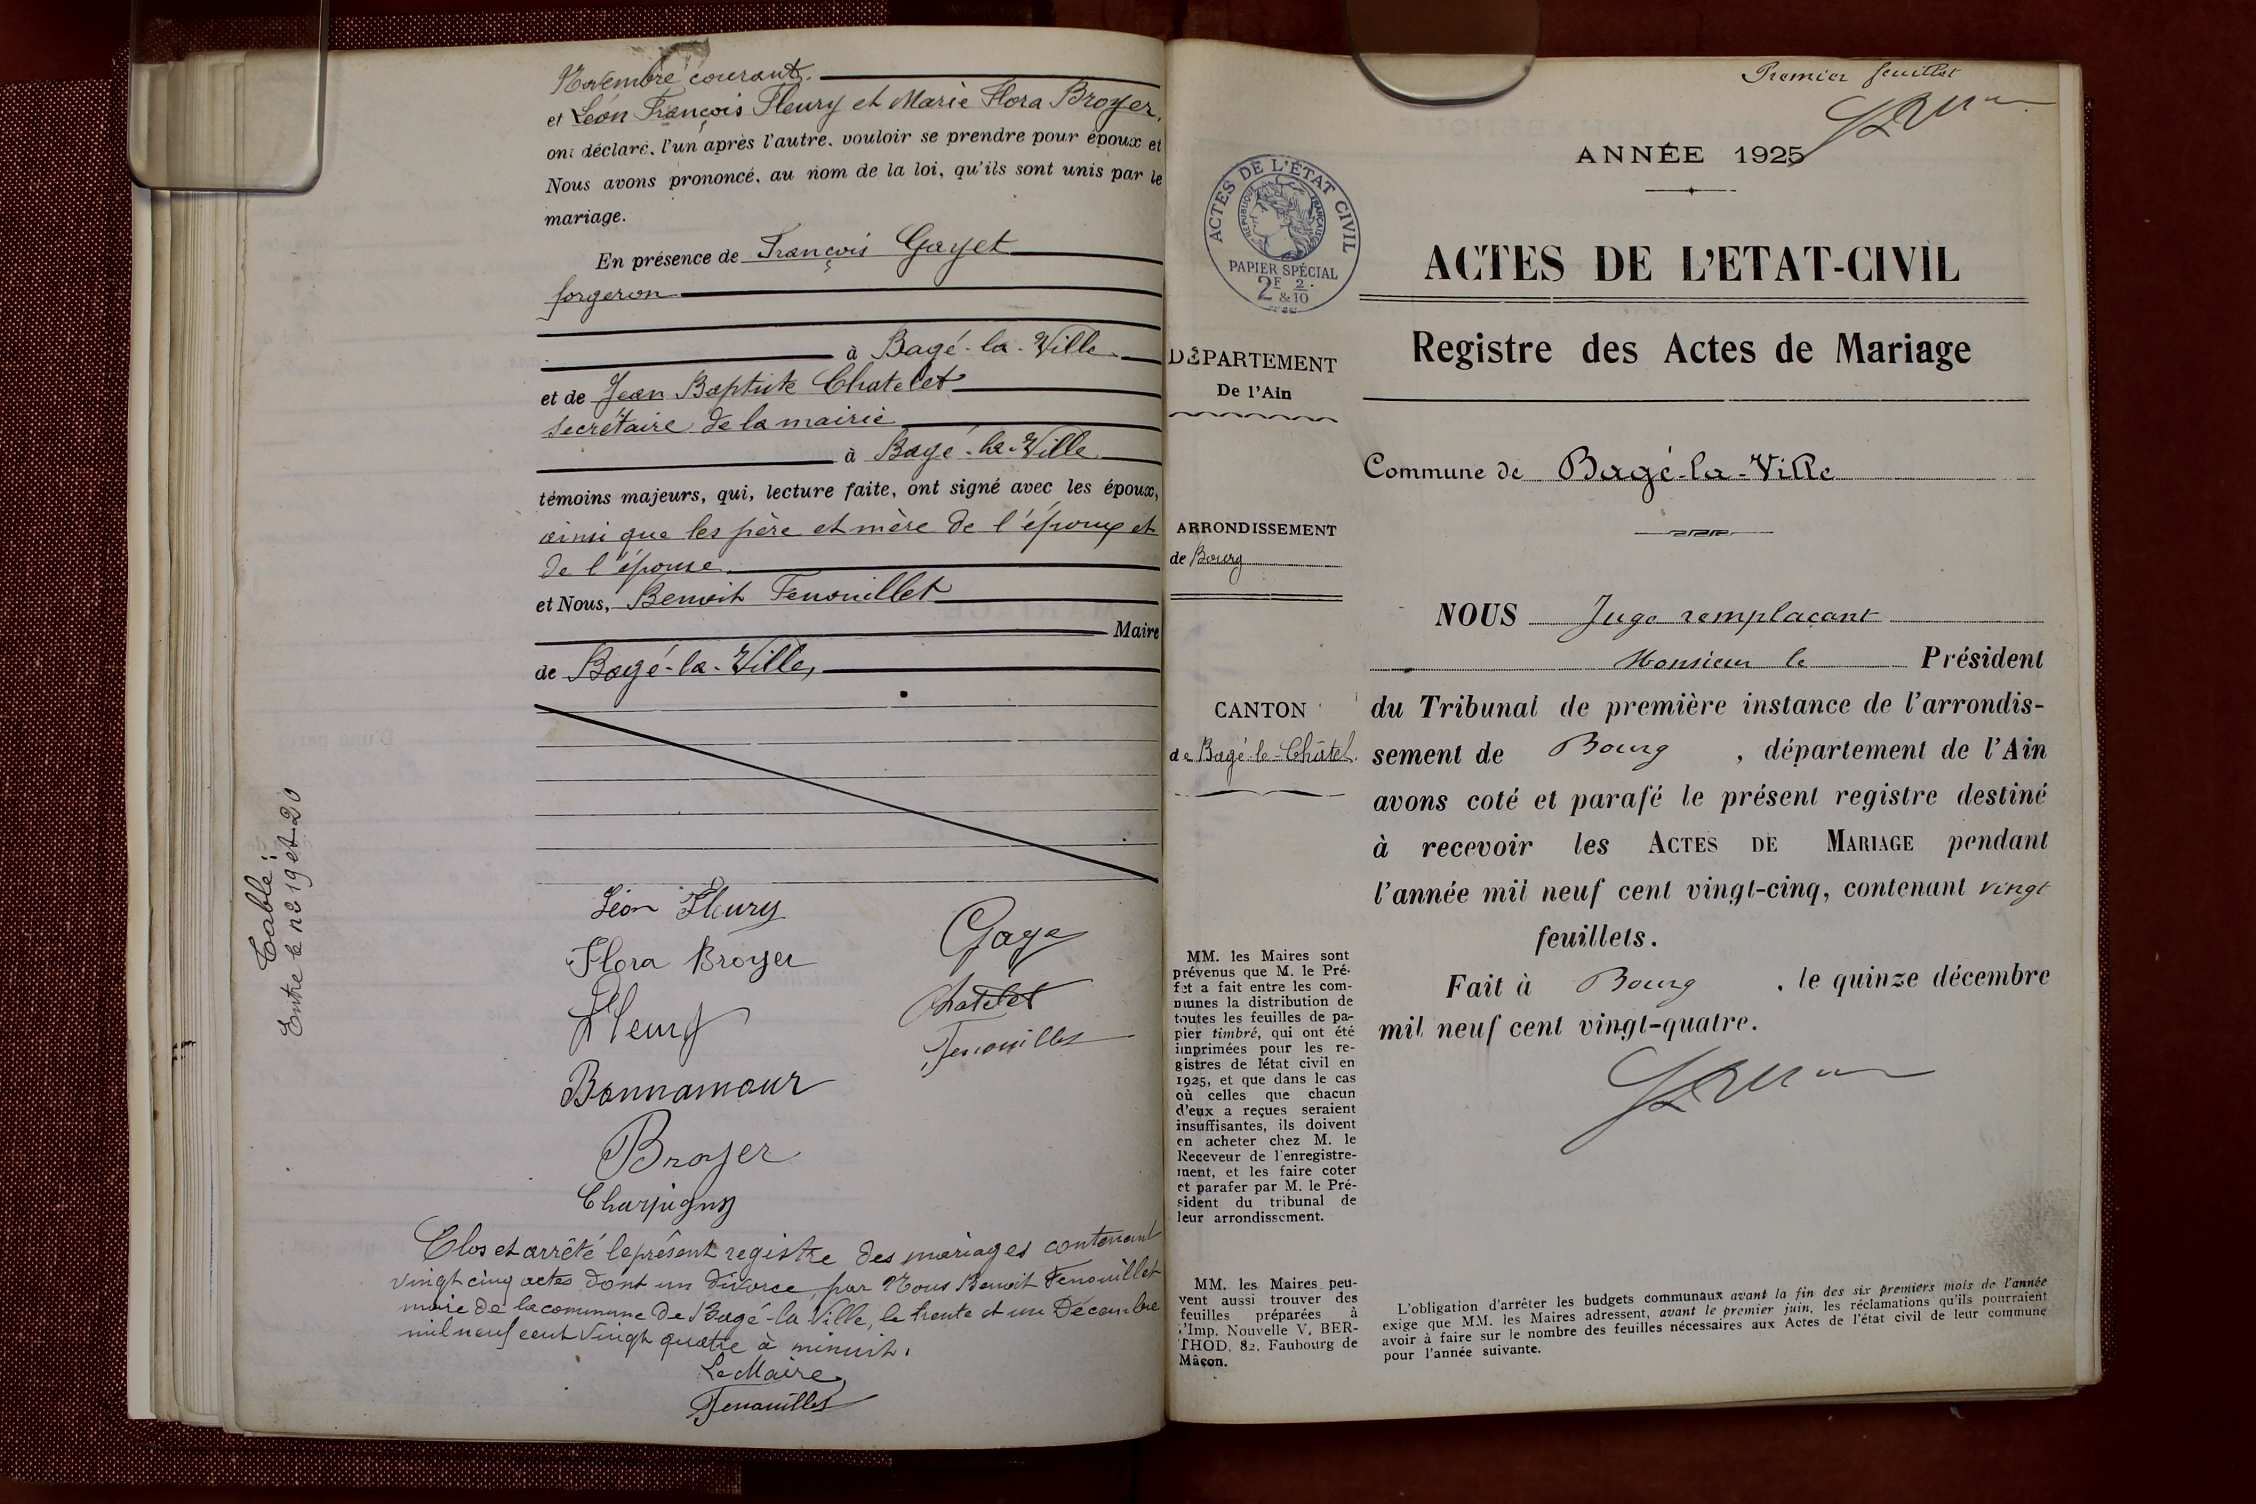 Novembre courant.
et Léon François Fleury et Marie Flora Broyer,
ont déclaré, l'un après l'autre, vouloir se prendre pour époux et
Nous avons prononcé, au nom de la loi, qu'ils sont unis par le
mariage.
En présence de François Gayet
forgeron
à Bagé-la-Ville
et de Jean Baptiste Chatelet
secrétaire de la mairie
à Bagé-la-Ville
témoins majeurs, qui, lecture faite, ont signé avec les époux,
ainsi que les père et mère de l'époux et
de l'épouse
et Nous, Benoit Fenouillet
Maire
de Bagé-la-Ville,
Léon Fleury
Flora Broyer
Fleury
Bonnamour
Broyer
Charpigny
Gaye
Chatelet
Fenouillet
Clos et arrêté le présent registre des mariages contenant
vingt cinq actes dont un divorce, par Nous Benoit Fenouillet
maire de la commune de Bagé-la-Ville, le trente et un Décembre
mil neuf cent vingt quatre à minuit.
Le Maire,
Fenouillet
Table :
Entre le no 19 et 20
Premier feuillet
ANNÉE 1925
ACTES DE L'ÉTAT CIVIL
RÉPUBLIQUE FRANÇAISE
PAPIER SPÉCIAL
2F & 2/10
ACTES DE L'ETAT-CIVIL
Registre des Actes de Mariage
DÉPARTEMENT
De l'Ain
Commune de Bagé-la-Ville
ARRONDISSEMENT
de Bourg
CANTON
de Bagé-le-Châtel.
NOUS Juge remplaçant
Monsieur le Président
du Tribunal de première instance de l'arrondis-
sement de Bourg, département de l'Ain
avons coté et parafé le présent registre destiné
à recevoir les ACTES DE MARIAGE pendant
l'année mil neuf cent vingt-cinq, contenant vingt
feuillets.
Fait à Bourg, le quinze décembre
mil neuf cent vingt-quatre.
MM. les Maires sont
prévenus que M. le Pré-
fet a fait entre les com-
munes la distribution de
toutes les feuilles de pa-
pier timbré, qui ont été
imprimées pour les re-
gistres de l'état civil en
1925, et que dans le cas
où celles que chacun
d'eux a reçues seraient
insuffisantes, ils doivent
en acheter chez M. le
Receveur de l'enregistre-
ment, et les faire coter
et parafer par M. le Pré-
sident du tribunal de
leur arrondissement.
MM. les Maires peu-
vent aussi trouver des
feuilles préparées à
l'Imp. Nouvelle V. BER-
THOD, 82, Faubourg de
Mâcon.
L'obligation d'arrêter les budgets communaux avant la fin des six premiers mois de l'année
exige que MM. les Maires adressent, avant le premier juin, les réclamations qu'ils pourraient
avoir à faire sur le nombre des feuilles nécessaires aux Actes de l'état civil de leur commune
pour l'année suivante.